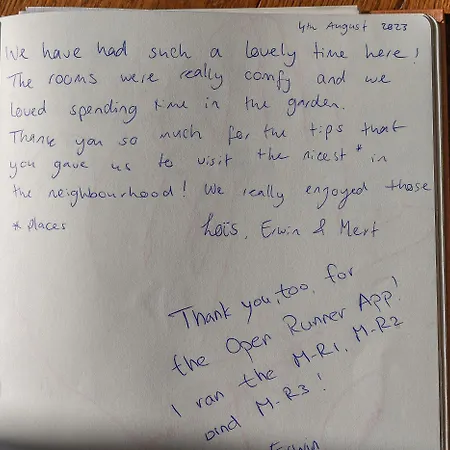 4th August 2023
We have had such a lovely time here!
The rooms were really comfy and we
loved spending time in the garden.
Thank you so much for the tips that
you gave us to visit the nicest * in
the neighbourhood! We really enjoyed those
* places
Loïs, Erwin & Mert
Thank you, too, for
the Open Runner App!
I ran the M-R1, M-R2
and M-R3!
Erwin